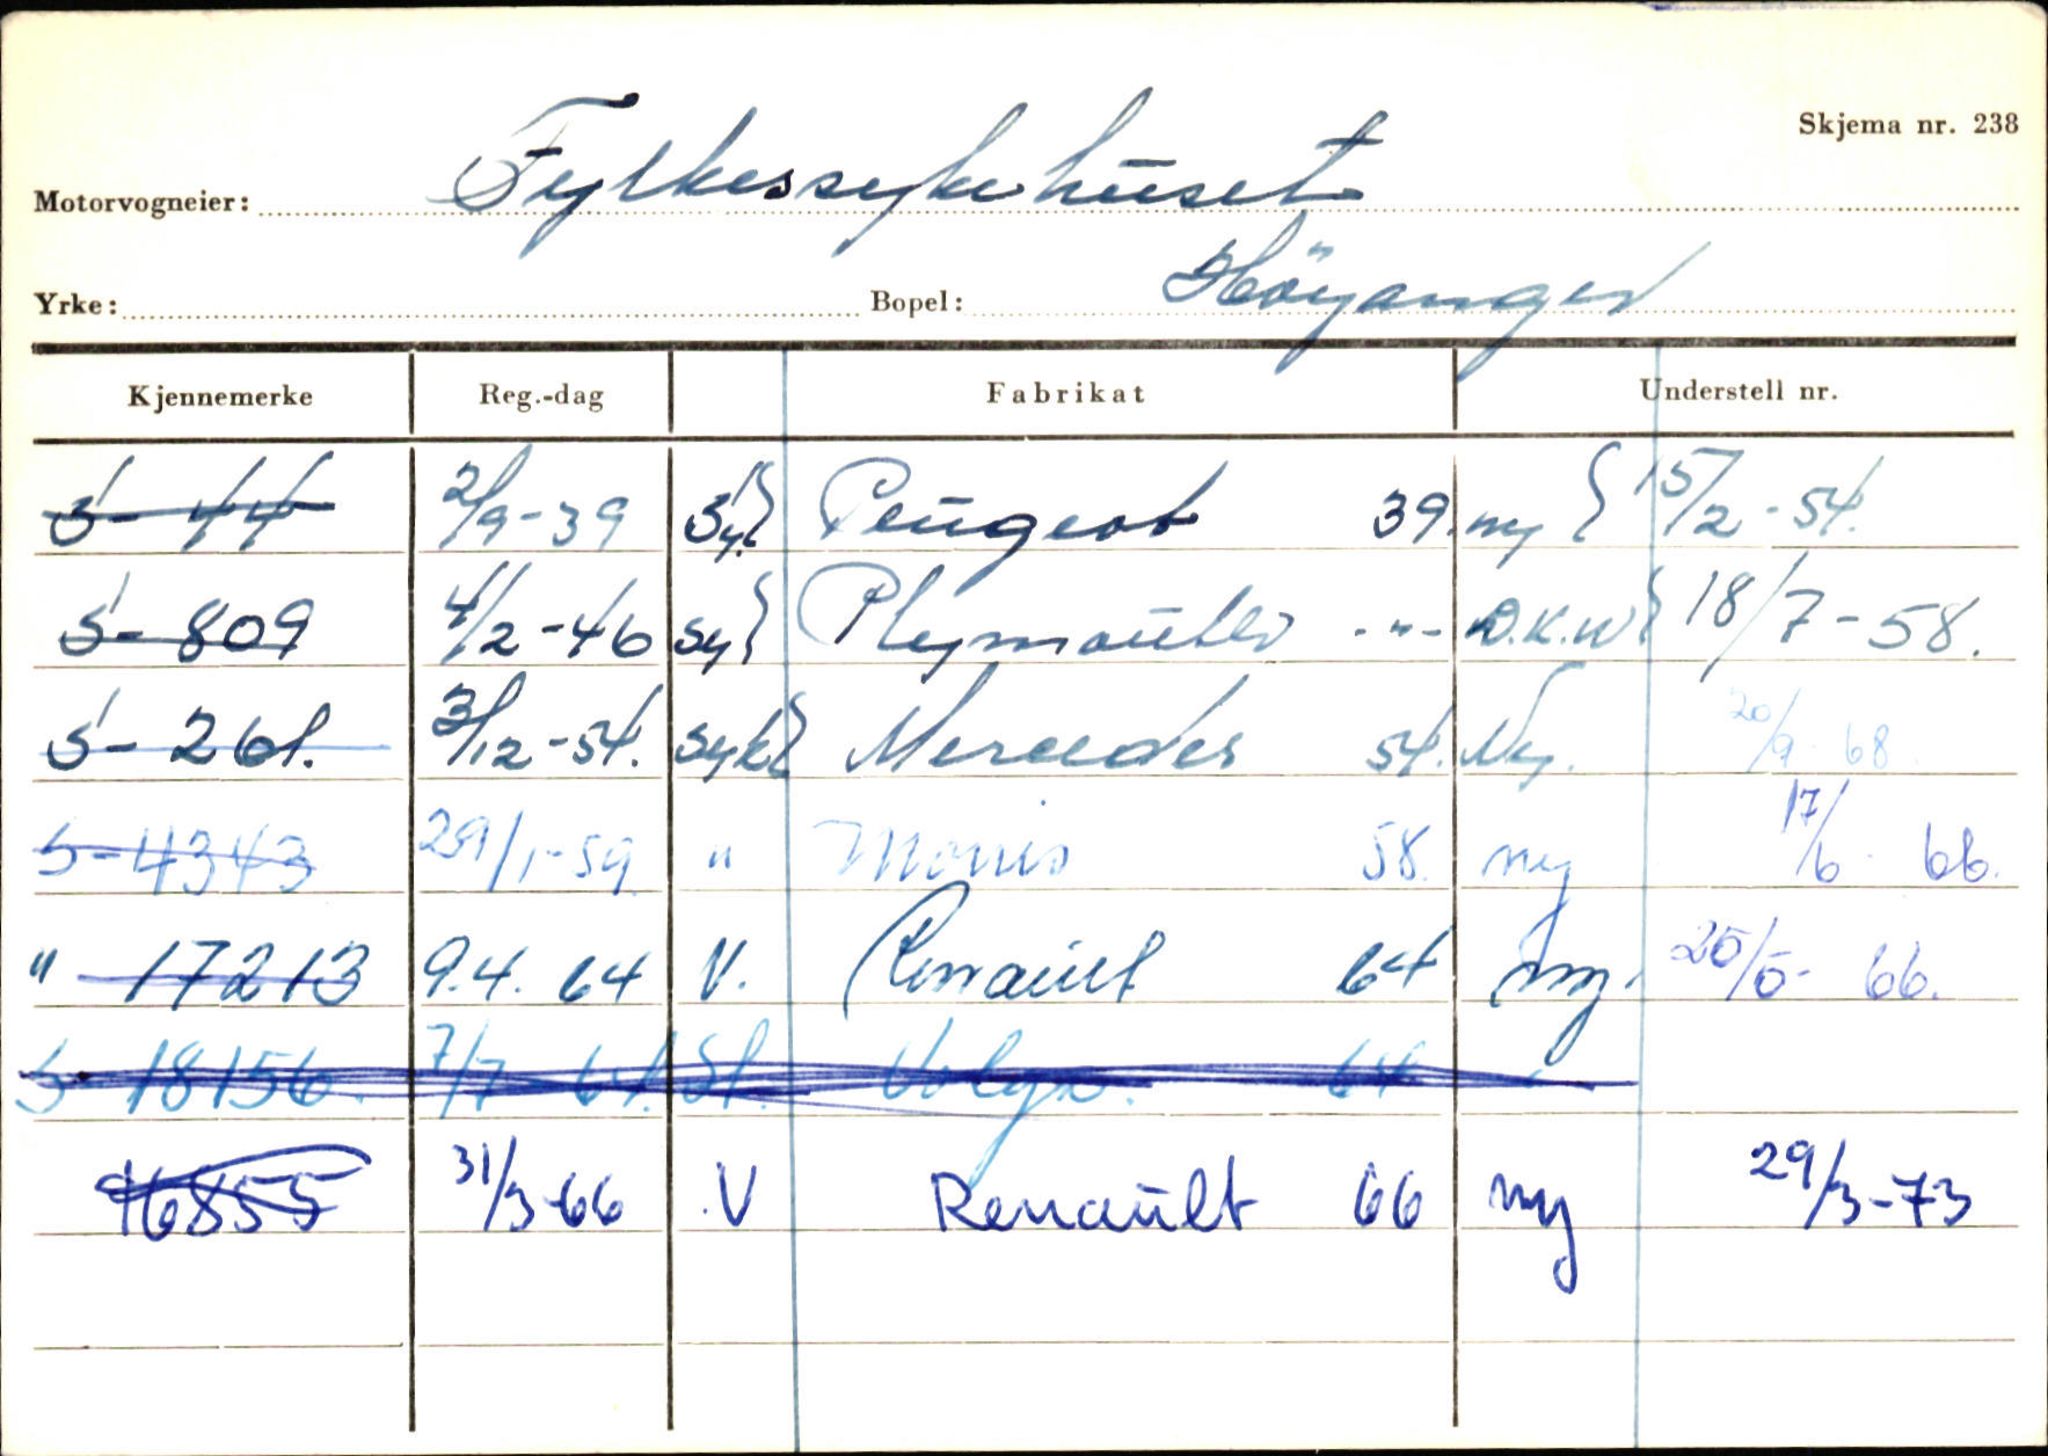 Skjema nr. 238
Motorvogneier: Fylkessykehuset
Yrke: Bopel: Höyanger
Kjennemerke Reg.-dag Fabrikat Understell nr.
S- 44 2/9-39 Sy. Peugeot 39. ny 15/2-54.
S- 809 4/2-46 Sy Plymouth -"- D.K.W 18/7-58.
S- 261. 3/12-54. Syk Mercedes 54. Ny. 20/9-68
S-4343 29/1-59. " Morris 58. ny 17/6-66.
" 17213 9.4. 64 V. Renault 64 ny. 25/5-66.
S-18156. 7/7 64. St. Volga. 64
96855 31/3-66 V Renault 66 ny 29/3-73